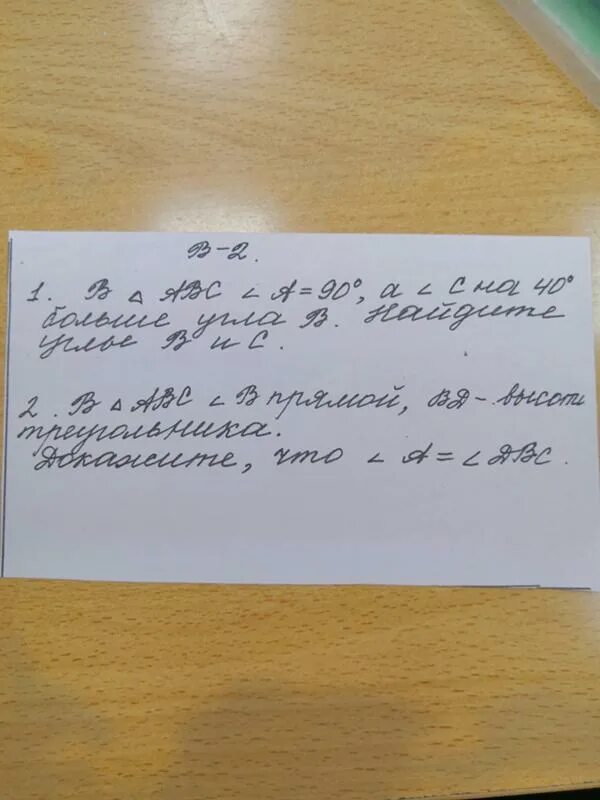 В-2.
1. В △ ABC ∠ A = 90°, а ∠ C на 40°
больше угла B. Найдите
углы B и C.
2. В △ ABC ∠ B прямой, BD - высота
треугольника.
Докажите, что ∠ A = ∠ DBC.